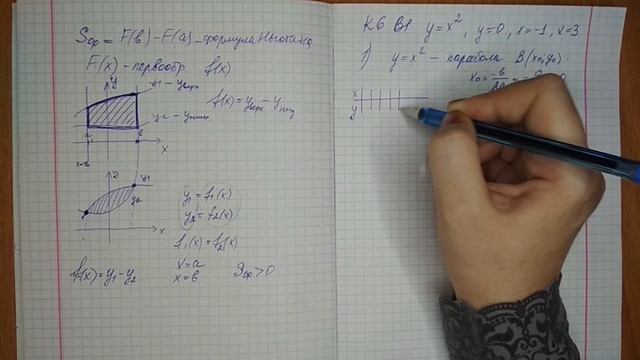 Sф = F(b) − F(a) − формула Ньютона
F(x) − первообр f(x)
y
y1 − yверх
f(x) = yверх − yниж
y2 − yниж
a
b
x
x=a
y
y1
y2
x
y₁ = f₁(x)
y₂ = f₂(x)
f₁(x) = f₂(x)
f(x) = y₁ − y₂
x = a
x = b
Sф > 0
К6 В1 y = x², y = 0, x = −1, x = 3
1) y = x² − парабола B(x₀, y₀)
x₀ = −b/2a = − 0
x
y